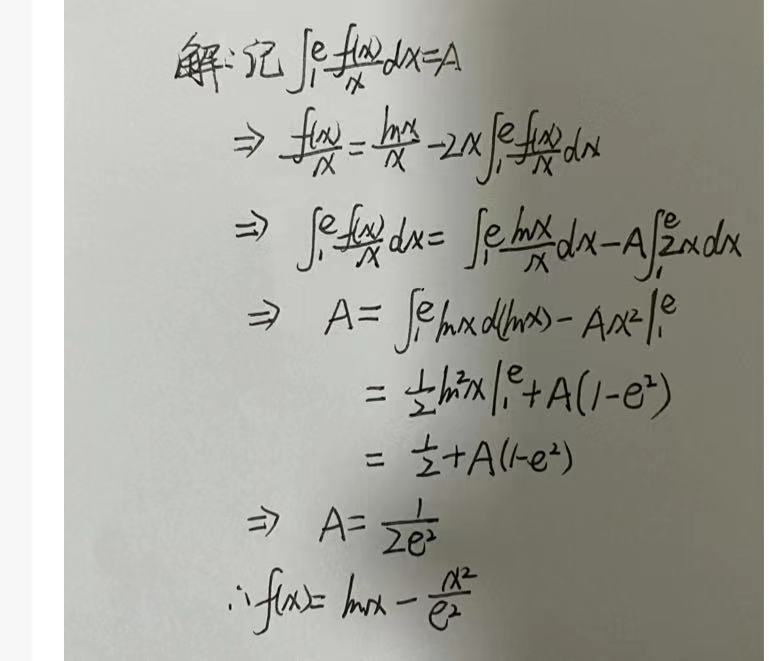 解:记∫₁ᵉ f(x)/x dx=A
⇒ f(x)/x = lnx/x -2x∫₁ᵉ f(x)/x dx
⇒ ∫₁ᵉ f(x)/x dx= ∫₁ᵉ lnx/x dx-A∫₁ᵉ2xdx
⇒ A= ∫₁ᵉlnxd(lnx)- Ax²|₁ᵉ
= 1/2 ln²x|₁ᵉ+A(1-e²)
= 1/2+A(1-e²)
⇒ A= 1/2e²
∴f(x)= lnx- x²/e²